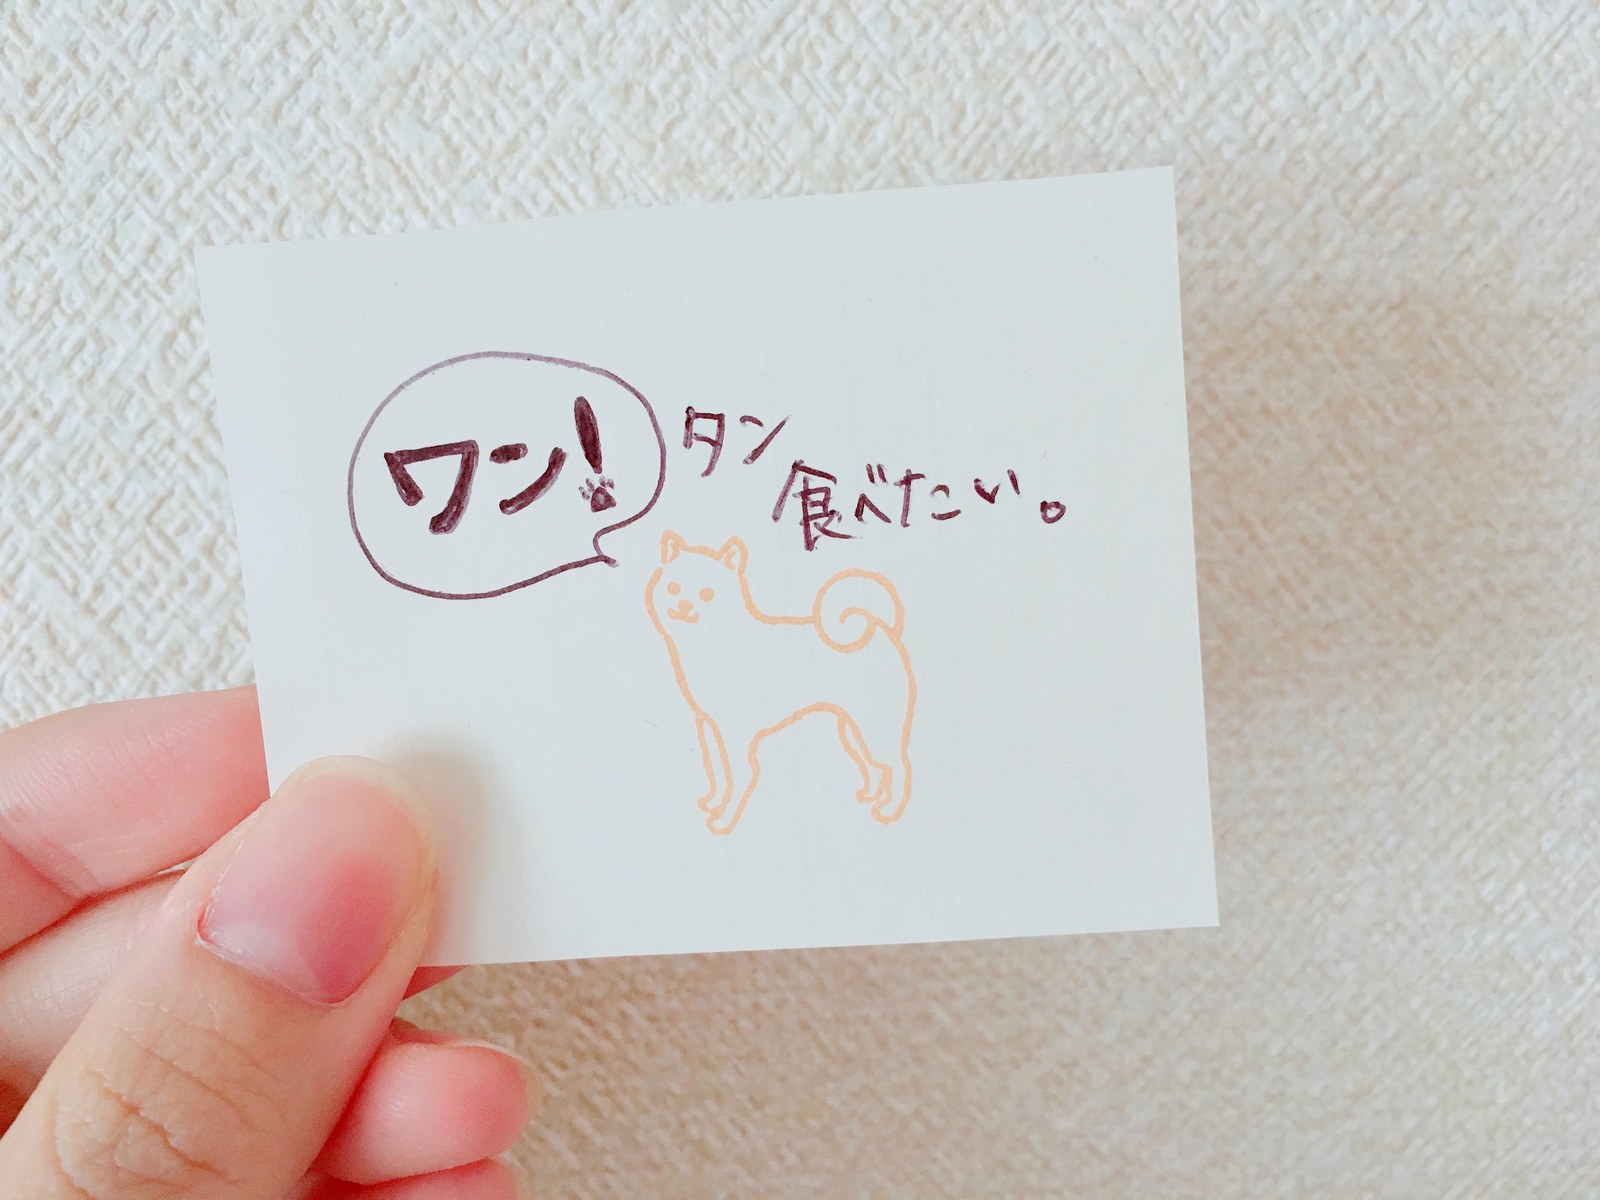 ワン!
タン
食べたい。